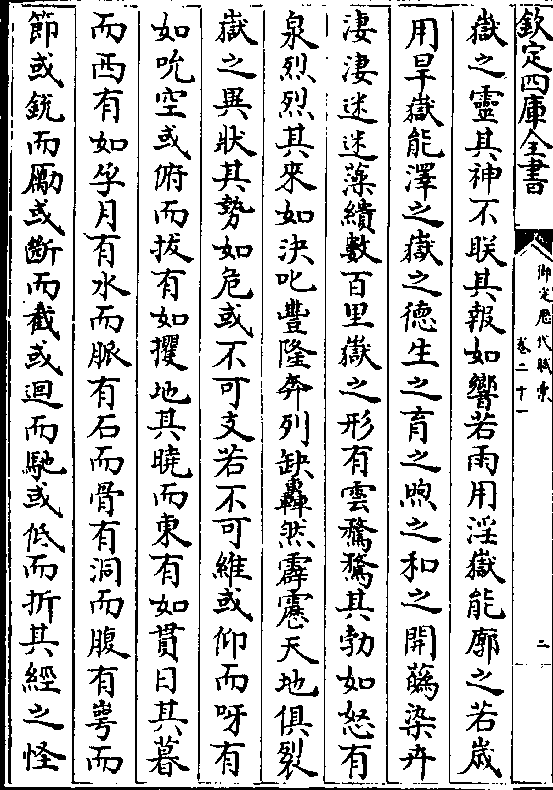 欽定四庫全書
御定歷代賦彙
卷二十一
二
嶽之靈其神不昧其報如響若雨用淫嶽能廓之若歲
用旱嶽能澤之嶽之德生之育之煦之和之開蘤染卉
淒淒迷迷藻繢數百里嶽之形有雲騖騖其勃如怒有
泉烈烈其來如決叱豐隆奔列缺轟然霹靂天地俱裂
嶽之異狀其勢如危或不可支若不可維或仰而呀有
如吮空或俯而拔有如攫地其曉而東有如貫日其暮
而西有如孕月有水而脈有石而骨有洞而腹有崿而
節或銳而厲或斷而截或迴而馳或低而折其經之怪